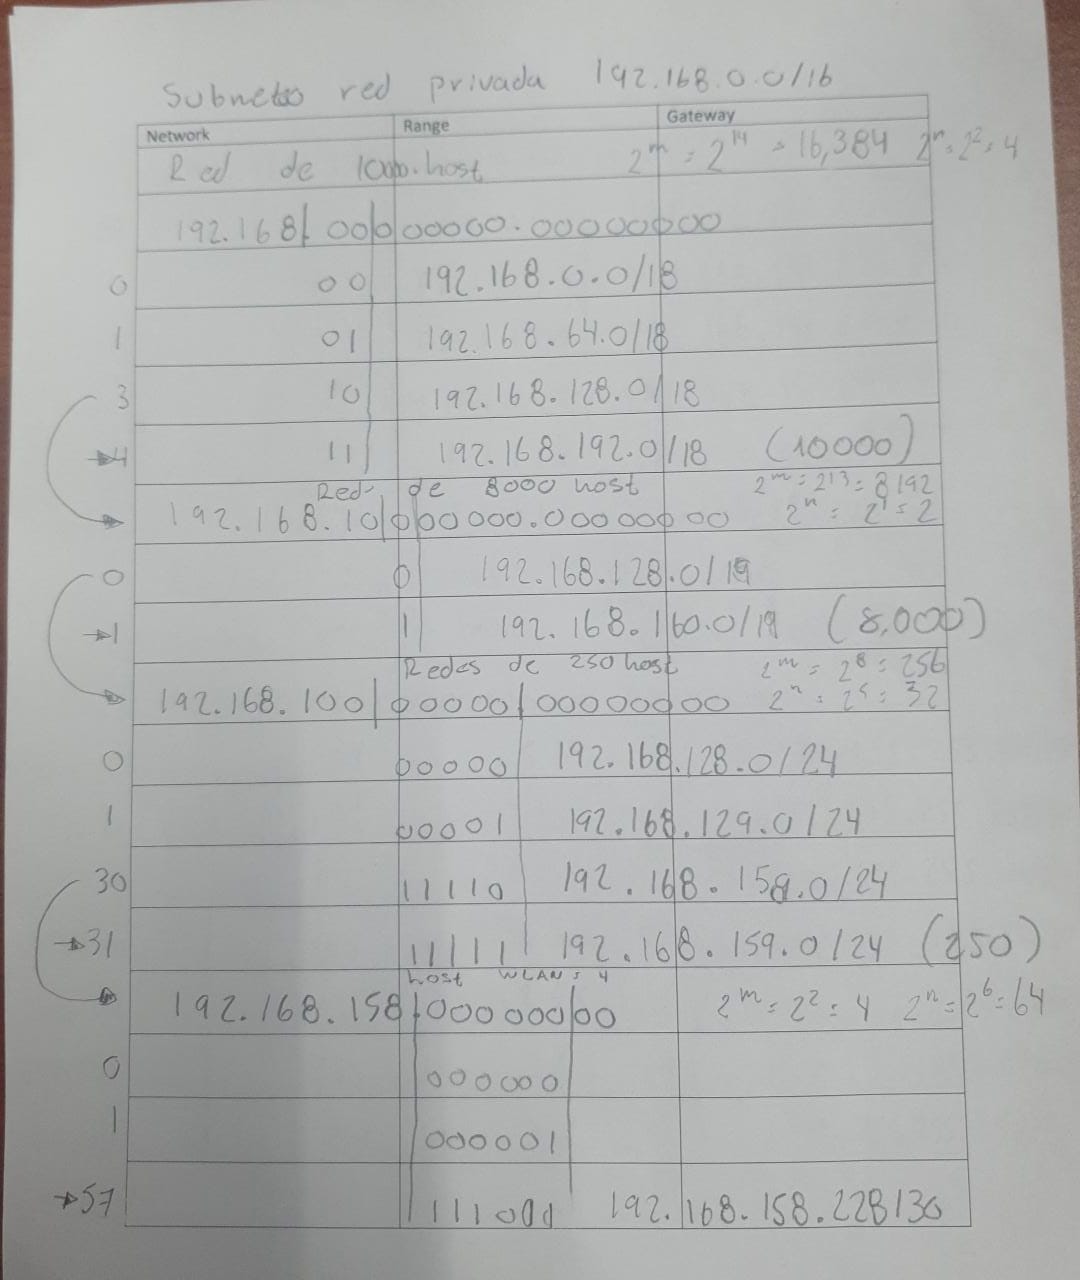 Subneteo red privada 192.168.0.0/16
Network Range Gateway
Red de 10000 host 2^m = 2^14 = 16,384 2^n = 2^2 = 4
192.168|00|000000.00000000
0 00 192.168.0.0/18
1 01 192.168.64.0/18
3 10 192.168.128.0/18
→4 11 192.168.192.0/18 (10000)
Red de 8000 host 2^m = 2^13 = 8192
192.168.10|000000.00000000 2^n = 2^1 = 2
0 0 192.168.128.0/19
→1 1 192.168.160.0/19 (8,000)
Redes de 250 host 2^m = 2^8 = 256
192.168.100|00000|00000000 2^n = 2^5 = 32
0 00000 192.168.128.0/24
1 00001 192.168.129.0/24
30 11110 192.168.158.0/24
→31 11111 192.168.159.0/24 (250)
host WLAN = 4
192.168.158|000000|00 2^m = 2^2 = 4 2^n = 2^6 = 64
0 000000
1 000001
→57 111001 192.168.158.228/30